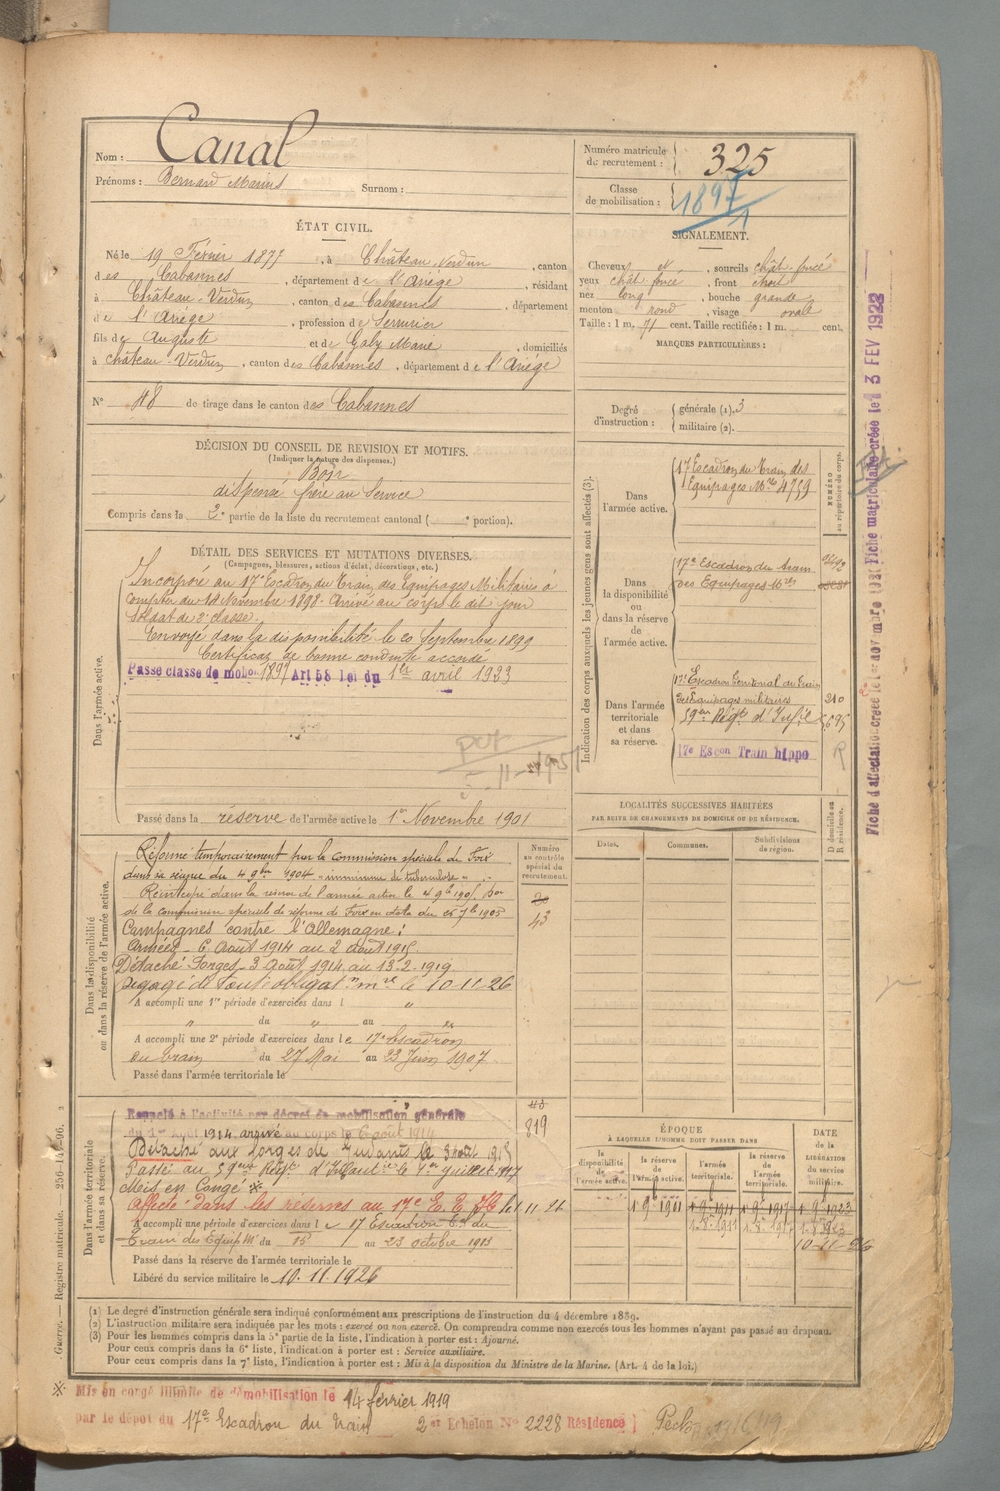 Nom : Canal
Prénoms : Bernard Marius Surnom :
Numéro matricule de recrutement : 325
Classe de mobilisation : 1897
ÉTAT CIVIL.
Né le 19 Février 1877, à Château-Verdun, canton
des Cabannes, département de l'Ariège, résidant
à Château-Verdun, canton des Cabannes, département
de l'Ariège, profession de Serrurier
fils de Auguste et de Galy Marie, domiciliés
à Château-Verdun, canton des Cabannes, département de l'Ariège
N° 48 de tirage dans le canton des Cabannes
SIGNALEMENT.
Cheveux, sourcils chât. foncé
yeux chât. foncé, front
nez long, bouche grande
menton rond, visage ovale
Taille : 1 m. 71 cent. Taille rectifiée : 1 m. cent.
MARQUES PARTICULIÈRES :
Degré d'instruction : générale (1). 3
militaire (2).
DÉCISION DU CONSEIL DE REVISION ET MOTIFS.
(Indiquer la nature des dispenses.)
Bon
dispensé frère au Service
Compris dans la 2e partie de la liste du recrutement cantonal ( e portion).
DÉTAIL DES SERVICES ET MUTATIONS DIVERSES.
(Campagnes, blessures, actions d'éclat, décorations, etc.)
Dans l'armée active.
Incorporé au 17e Escadron du Train des Equipages Militaires à
compter du Novembre 1898. Arrivé au corps le dit jour
Soldat de 2e classe.
Envoyé dans la disponibilité le 20 Septembre 1899
Certificat de bonne conduite accordé
Passé classe de mobon 1897 Art 58 loi du 1er avril 1923
Passé dans la réserve de l'armée active le 1er Novembre 1901
Indication des corps auxquels les jeunes gens sont affectés (3).
NUMÉRO au répertoire du corps.
Dans l'armée active.
17 Escadron du Train des
Equipages Mres 4759
Dans la disponibilité ou dans la réserve de l'armée active.
17e Escadron du train
des Equipages Mres
Dans l'armée territoriale et dans sa réserve.
17e Escadron Territorial du Train
des Equipages militaires 210
59ème Régt d'Infie
17e Escon Train hippo R
Fiche d'affectation créée le 1er novembre
Fiche matriculaire créée le 13 FEV 1922
LOCALITÉS SUCCESSIVES HABITÉES
PAR SUITE DE CHANGEMENTS DE DOMICILE OU DE RÉSIDENCE.
Dates. Communes. Subdivisions de région. D domicile ou R résidence.
Dans la disponibilité ou dans la réserve de l'armée active.
Numéro au contrôle spécial du recrutement.
Réformé temporairement par la commission spéciale de Foix
dans sa séance du 4 9bre 1904
Réintégré dans la réserve de l'armée active le 4 9bre 1905 par
de la commission spéciale de réforme de Foix en date du 26 7bre 1905
43
Campagnes contre l'Allemagne :
Armées 6 Août 1914 au 2 août 1915
Détaché Forges 3 Août 1914 au 13-2-1919
Dégagé de toute obligat. mre le 10-11-26
A accompli une 1re période d'exercices dans l "
" du " au "
A accompli une 2e période d'exercices dans le 17e Escadron
du train du 27 Mai au 23 Juin 1907
Passé dans l'armée territoriale le
Dans l'armée territoriale et dans sa réserve.
Rappelé à l'activité par décret de mobilisation générale
du 1er Août 1914 arrivé au corps le 6 août 1914
819
Détaché aux forges de le 3 août 1915
Passé au 59ème Régt d'Infantie le 1er juillet 1917
Mis en Congé ※
Affecté dans les réserves au 17e
A accompli une période d'exercices dans le 17 Escadron du
Train des Equip. M. du 15 au 23 octobre 1913
Passé dans la réserve de l'armée territoriale le
Libéré du service militaire le 10.11.1926
ÉPOQUE
À LAQUELLE L'HOMME DOIT PASSER DANS
la disponibilité de l'armée active. la réserve de l'armée active. l'armée territoriale. la réserve de l'armée territoriale.
DATE DE LA LIBÉRATION du service militaire.
10-11-26
(1) Le degré d'instruction générale sera indiqué conformément aux prescriptions de l'instruction du 4 décembre 1889.
(2) L'instruction militaire sera indiquée par les mots : exercé ou non exercé. On comprendra comme non exercés tous les hommes n'ayant pas passé au drapeau.
(3) Pour les hommes compris dans la 5e partie de la liste, l'indication à porter est : Ajourné.
Pour ceux compris dans la 6e liste, l'indication à porter est : Service auxiliaire.
Pour ceux compris dans la 7e liste, l'indication à porter est : Mis à la disposition du Ministre de la Marine. (Art. 4 de la loi.)
Guerre. — Registre matricule.
※ Mis en congé illimité de démobilisation le 14 février 1919
par le dépot du 17e Escadron du Train 2er Echelon No 2228 Résidence